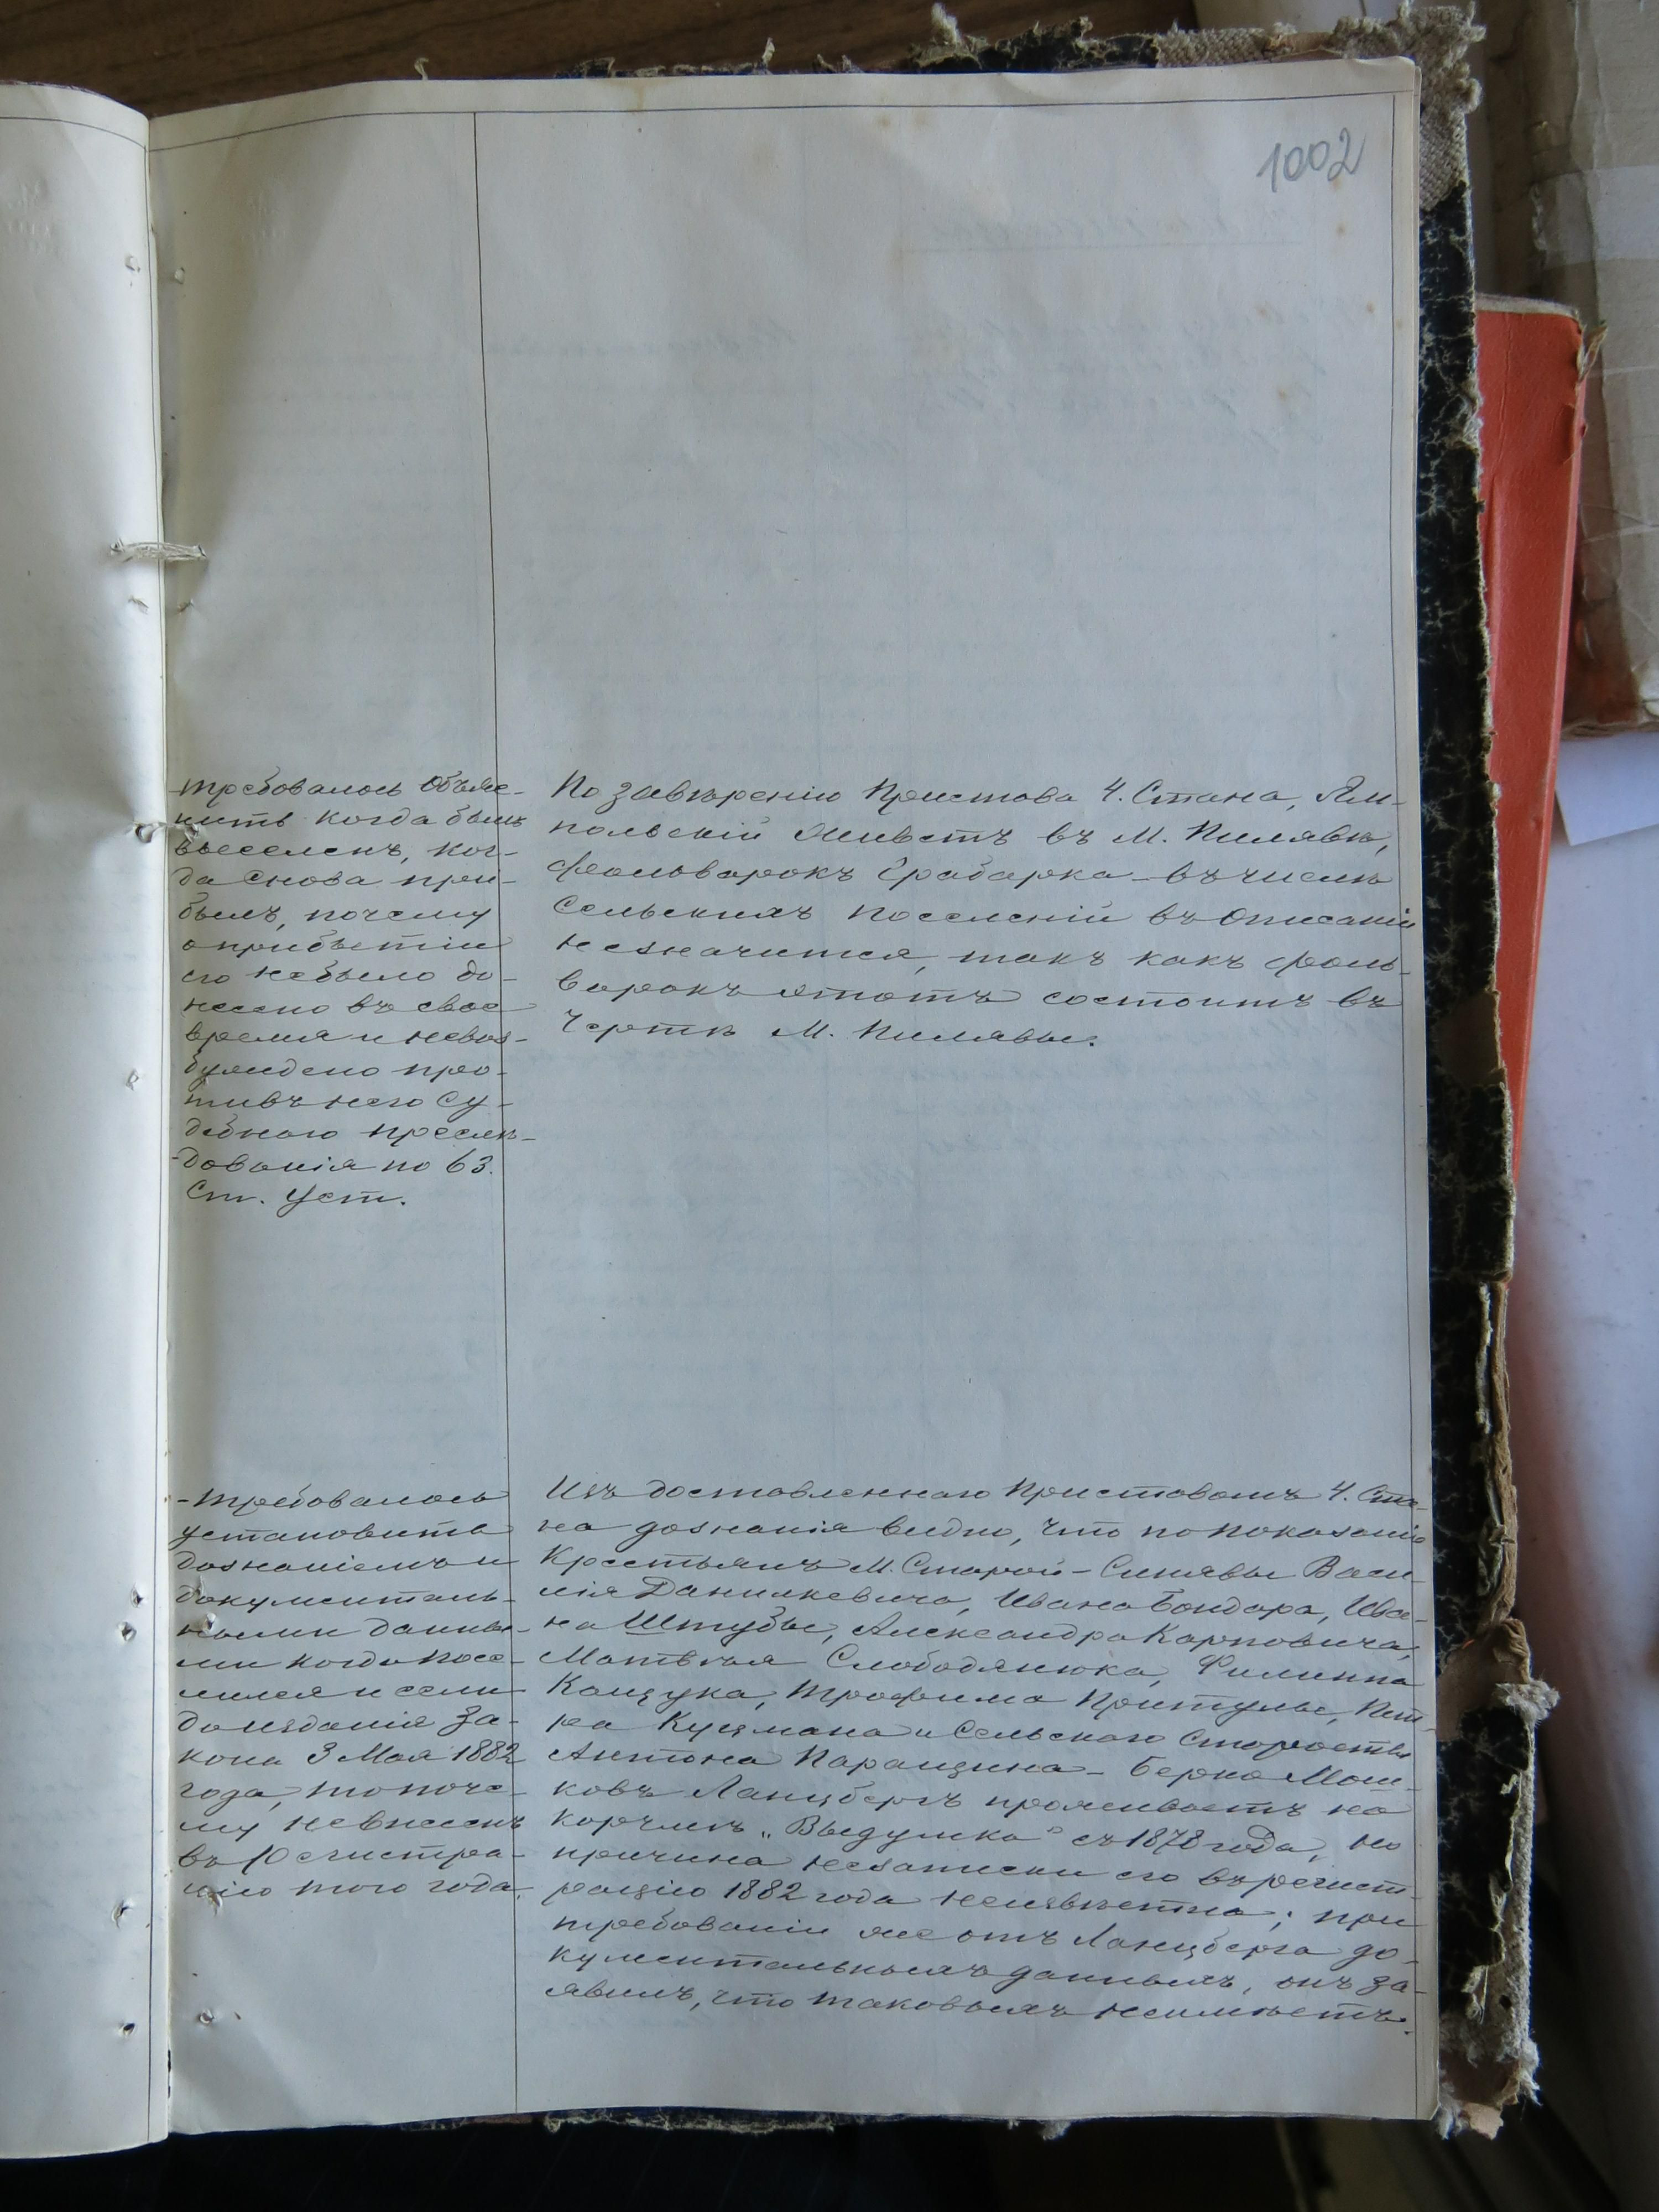 1002
-требовалось Объяс-
нить когда былъ
выселенъ, ког-
да снова при-
былъ, почему
о прибытіи
его небыло до-
несено въ свое
время и невоз-
буждено про-
тивъ него Су-
дебнаго преслѣ-
-дованія по 63.
Ст. Уст.
По завѣренію Пристава 4. Стана, Ям-
польскій живетъ въ М. Пилявѣ,
фольварокъ Грабарка - въ числѣ
Сельскихъ поселеній въ Описаніи
незначится, такъ какъ фоль-
варокъ этотъ состоитъ въ
Чертѣ М. Пилявы.
-требовалось
установить
дознаніемъ и
документаль-
ными данны-
ми когда посе-
лился и если
до изданія За-
кона 3 Мая 1882
года, то поче-
му невнесенъ
въ регистра-
цію того года.
Изъ доставленнаго Приставомъ 4. Ста-
на дознанія видно, что по показанію
Крестьянъ М. Старой-Синявы Васи-
лія Данилкевича, Ивана Бондара, Ива-
на Штубы, Александра Карповича,
Матвѣя Слободянюка, Филиппа
Кащука, Трофима Притулы, Пет-
ра Куцмана и Сельскаго Старосты
Антона Паращина - Берко Мош-
ковъ Ланцбергъ проживаетъ на
корчмѣ „Выдумка" съ 1878 года, но
причина незаписки его въ регист-
рацію 1882 года неизвѣстна; при
требованіи же отъ Ланцберга до-
кументальныхъ данныхъ, онъ за-
явилъ, что таковыхъ неимѣетъ.